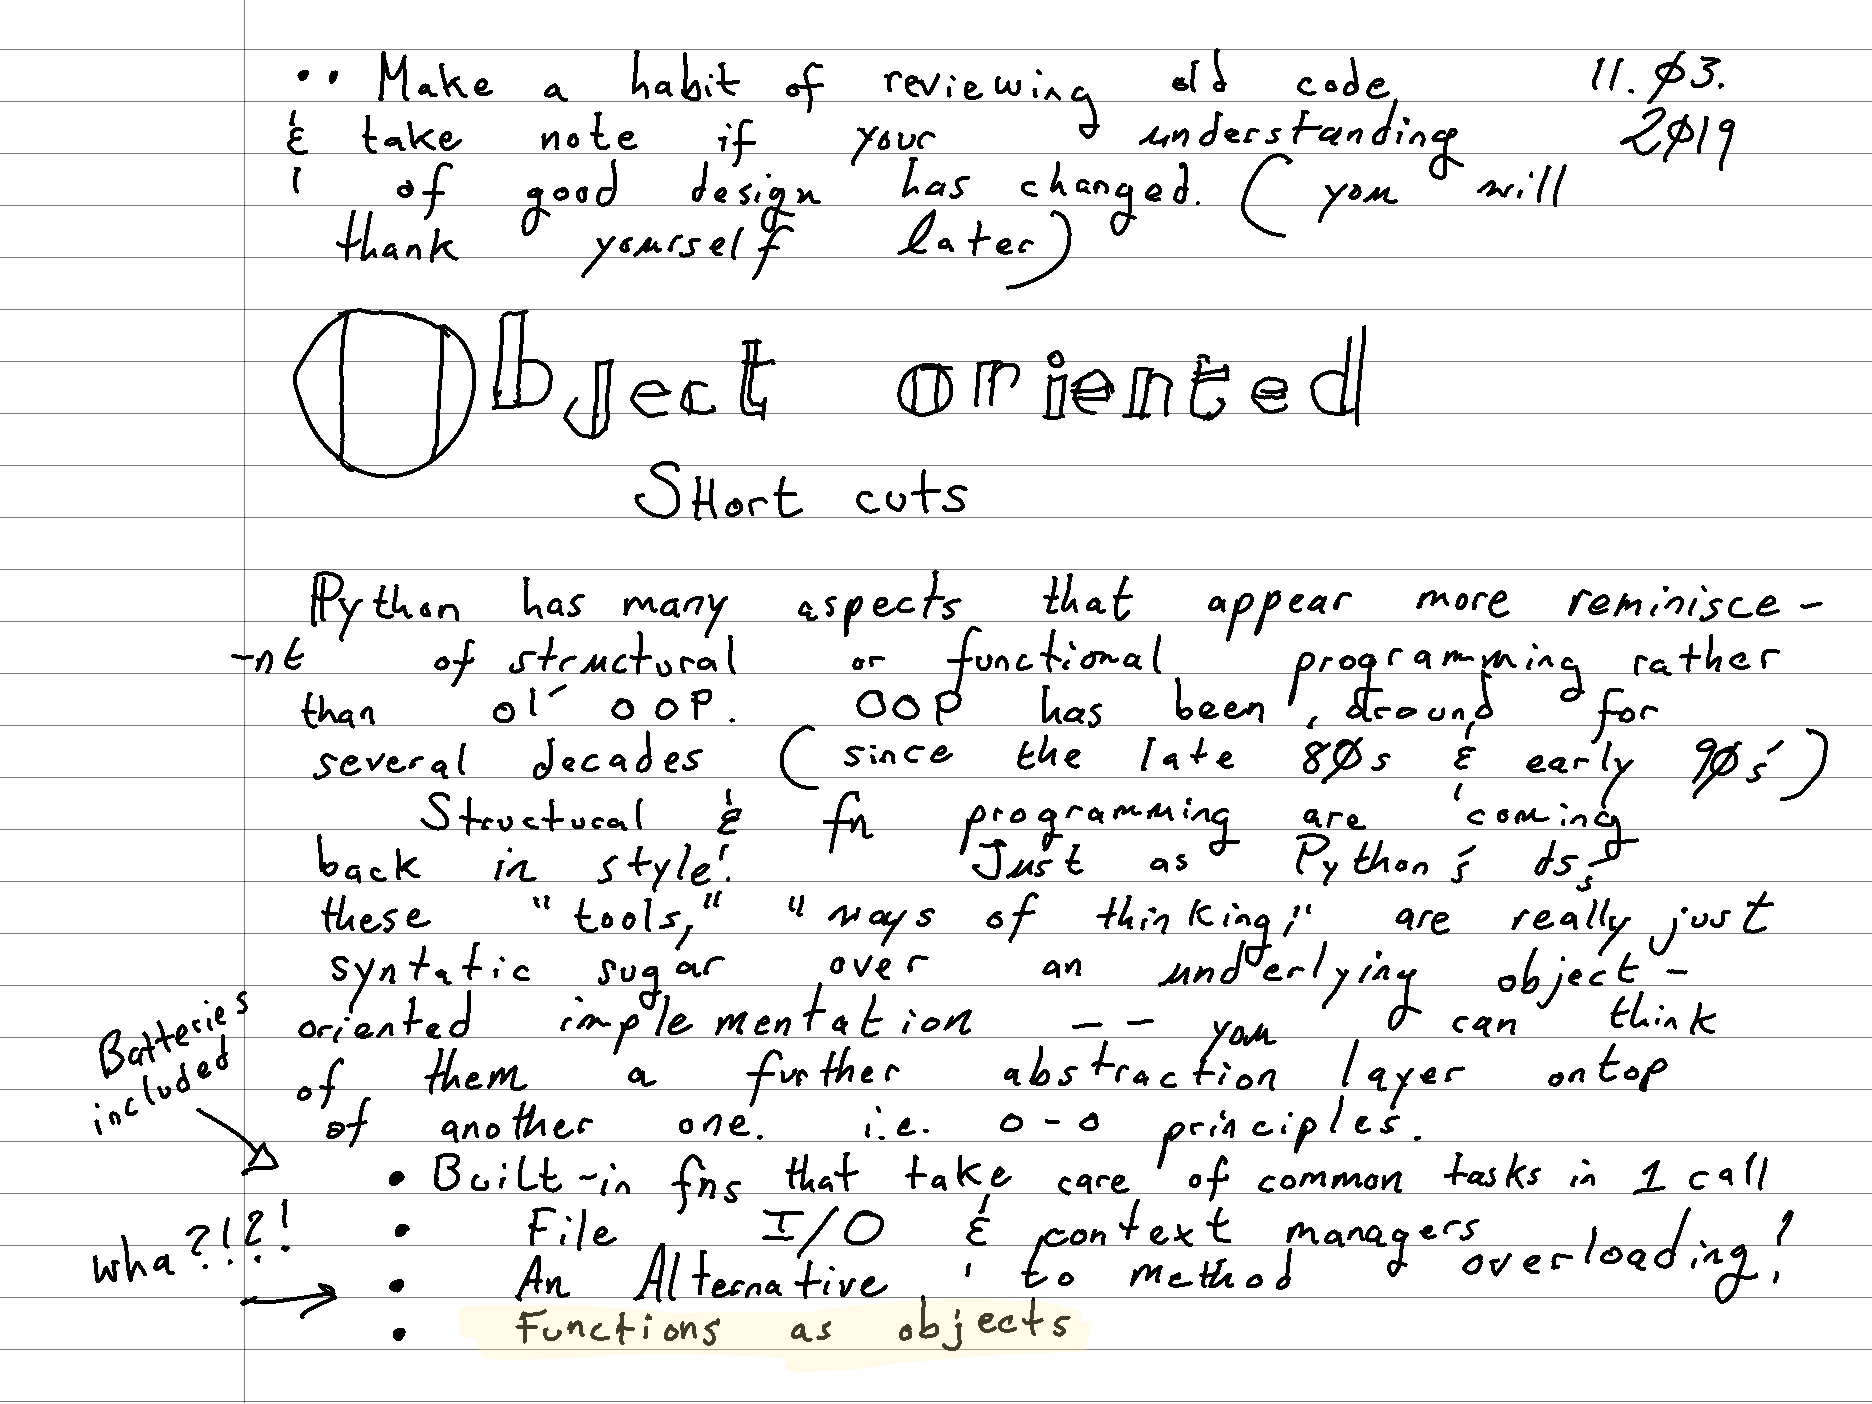 •• Make a habit of reviewing old code, 11.03.
& take note if your understanding 2019
of good design has changed. (you will
thank yourself later)
Object oriented
SHort cuts
Python has many aspects that appear more reminisce-
-nt of structural or functional programming rather
than ol' OOP. OOP has been around for
several decades (since the late 80s & early 90s')
Structural & fn programming are coming
back in style! Just as Python's ds,
these "tools," "ways of thinking," are really just
syntatic sugar over an underlying object-
oriented implementation -- you can think
of them a further abstraction layer ontop
of another one. i.e. o-o principles.
Batteries
included
• Built-in fns that take care of common tasks in 1 call
• File I/O & context managers
wha?!?!
• An Alternative to method overloading!
• Functions as objects